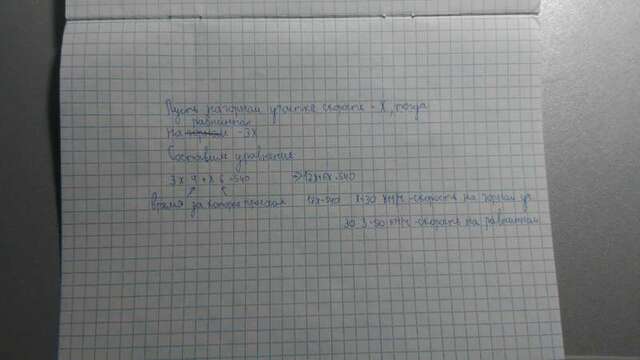 Пусть на горном участке скорость - X, тогда
равнинном
на - 3X
Составим уравнение
3x 4 + x 6 = 540 => 12x+6x=540
Время за которое проехали 18x=540 x=30 км/ч - скорость на горном уч
30 3=90 км/ч - скорость на равнинном